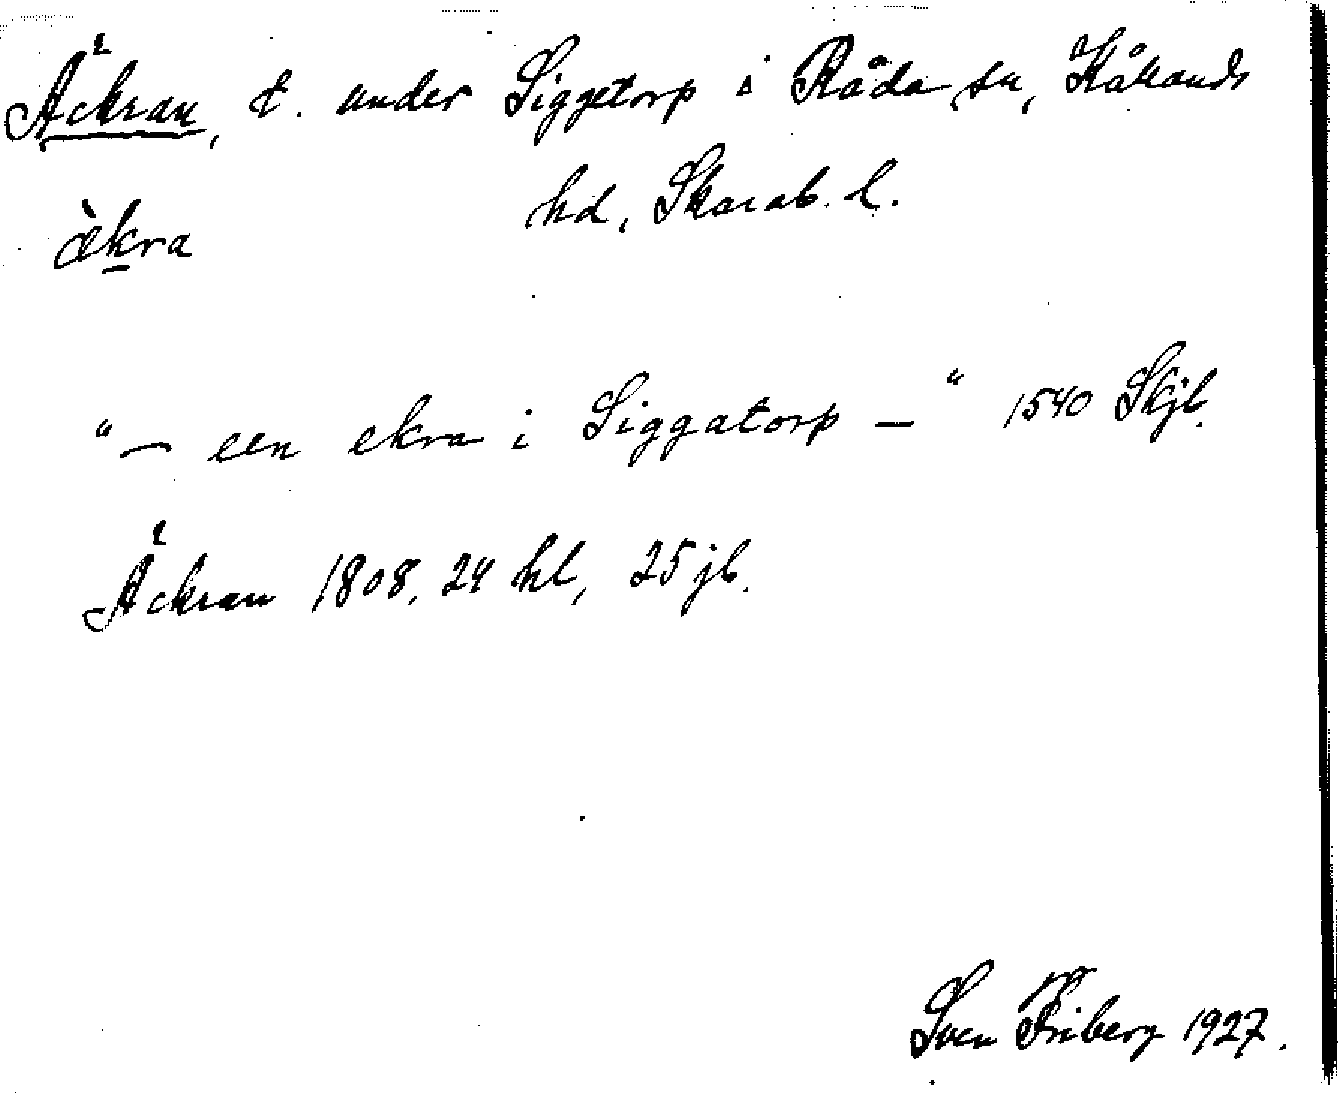 Äckran, t. under Siggetorp i Råda sn, Kållands
hd, Skarab. l.
æ̀kra
"— een ekra i Siggatorp —" 1540 Skjb.
Äckran 1808, 24 hl, 25 jb.
Sven Friberg 1927.